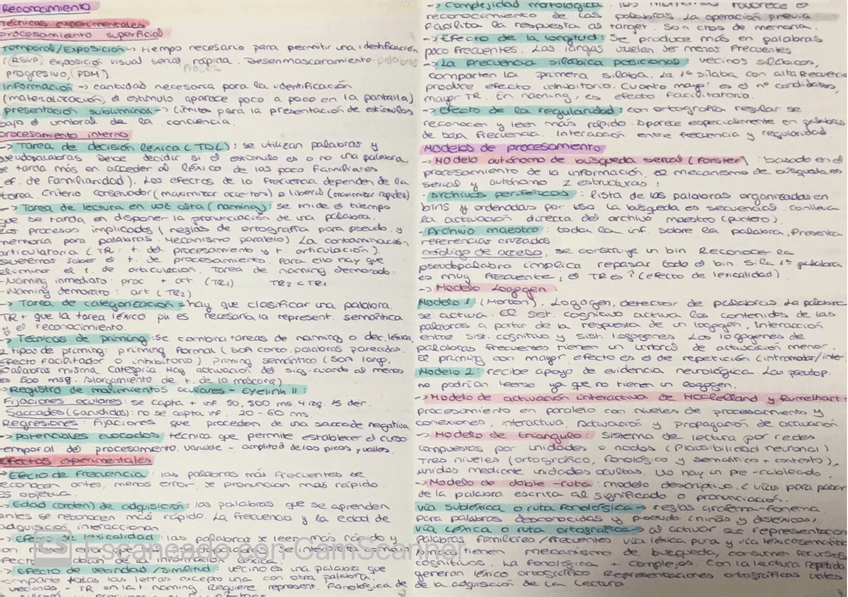 Reconocimiento
Técnicas experimentales
procesamiento superficial
Temporal/Exposición → tiempo necesario para permitir una identificación
(RSVP, exposición visual serial rápida. Desenmascaramiento
progresivo, PDM)
información → cantidad necesaria para la identificación
(materialización, el estímulo aparece poco a poco en la pantalla)
presentación subliminal → límites para la presentación de estímulos
bajo el umbral de la conciencia.
procesamiento interno
→ Tarea de decisión léxica (TDL): se utilizan palabras y
pseudopalabras. Debe decidir si el estímulo es o no una palabra.
se tarda más en acceder al léxico de las poco familiares
(ef. de familiaridad). Los efectos de la frecuencia dependen de la
tarea. Criterio conservador (maximizar aciertos) o liberal
→ Tarea de lectura en voz alta (naming): se mide el tiempo
que se tarda en disponer la pronunciación de una palabra.
Los procesos implicados (reglas de ortografía para pseudo y
memoria para palabras. Mecanismo paralelo) La contaminación
articulatoria (TR: t. del procesamiento y t. articulación)
el t. de procesamiento. Para ello hay que
eliminar el t. de articulación. Tarea de naming demorado:
- Naming inmediato: proc + art (TR1) TR2 < TR1
- Naming demorado: art (TR2)
→ Tarea de categorización → hay que clasificar una palabra.
TR > que la tarea léxico pq es necesaria la represent. semántica
y el reconocimiento.
→ Técnicas de priming: se combina tareas de naming o dec. léxica
tipo de priming: priming formal (son como palabras parecidas.
efecto facilitador o inhibitorio) priming semántico (son
palabras misma categoría. Hay activación del sig. cuando al menos
500 msg.
→ Registro de movimientos oculares - Eyelink II:
Fijaciones oculares: se capta inf. 50, 500 ms 4 izq. 15 der.
Saccades (sacudidas): no se capta inf. 20-60 ms
Regresiones: Fijaciones que proceden de una saccade negativa
→ Potenciales evocados: técnica que permite establecer el curso
temporal del procesamiento. variable - amplitud de los picos y valles.
Efectos experimentales
→ Efecto de frecuencia: las palabras más frecuentes se
conocen antes, menos error. se pronuncian más rápido.
Es objetiva.
→ Edad (orden) de adquisición: las palabras que se aprenden
antes se reconocen más rápido. La frecuencia y la edad de
adquisición interaccionan
→ Efecto de lexicalidad: las palabras se leen más
→ Efecto de vecindad/similitud: vecino es una palabra que
comparte todas las letras excepto una con otra palabra.
vecinos - TR en la t. naming. Requiere represent. fonológica de
Escaneado con CamScanner
→ Complejidad morfológica:
reconocimiento de las palabras. La operación previa
facilita la respuesta al target.
→ Efecto de la longitud: Se produce más en palabras
poco frecuentes. Las largas suelen ser menos frecuentes
→ La frecuencia silábica posicional: vecinos silábicos,
comparten la primera sílaba. La 1ª sílaba con alta frecuencia
produce efecto inhibitorio. Cuanto mayor es el nº candidatos,
mayor TR. En naming, es efecto facilitador.
→ Efecto de la regularidad: con ortografía regular se
reconocen y leen más rápido. Aparece especialmente en palabras
de baja frecuencia. Interacción entre frecuencia y regularidad
Modelos de procesamiento
→ Modelo autónomo de búsqueda serial (Forster): basado en el
procesamiento de la información. el mecanismo de búsqueda es
serial y autónomo. 2 estructuras:
- Archivos periféricos: lista de las palabras organizadas en
bins y ordenadas por uso. La búsqueda es secuencial. conlleva
la actuación directa del archivo maestro (puntero).
- Archivo maestro: toda la inf. sobre la palabra. Presenta
referencias cruzadas
código de acceso, se construye un bin. Reconocer la
pseudopalabra implica repasar todo el bin. Si la 1ª palabra
es muy frecuente, el TR es ↑ (efecto de lexicalidad).
→ Modelo Logogen
Modelo 1 (Morton). Logogen, detector de palabras. La palabra
se activa. El sist. cognitivo activa los contenidos de las
palabras a partir de la respuesta de un logogen. Interacción
entre sist. cognitivo y sist. logogenes. Los logogenes de
palabras frecuentes tienen un umbral de activación menor.
El priming con mayor efecto es el de repetición (intramodal/inter-
Modelo 2: recibe apoyo de evidencia neurológica. Las pseudop.
no podrían leerse ya que no tienen un logogen.
→ Modelo de activación interactiva de McClelland y Rumelhart:
procesamiento en paralelo con niveles de procesamiento y
conexiones, interactiva, activación y propagación de activación
→ Modelo de triángulo: sistema de lectura por redes
compuestos por unidades - nodos (Plausibilidad neuronal)
Tres niveles (ortográfico, fonológico y semántico + contexto),
unidas mediante unidades ocultas. No hay un pre-cableado.
→ Modelo de doble-ruta: modelo descriptivo. 2 vías para pasar
de la palabra escrita al significado o pronunciación.
vía subléxica o ruta fonológica → reglas grafema-fonema.
Para palabras desconocidas y pseudo (niños y disléxicos)
vía léxica o ruta ortográfica →
Palabras familiares/frecuentes vía léxica pura y vía léxico semántica
tienen mecanismo de búsqueda, consumen recursos
cognitivos. La fonológica + complejos. Con la lectura repetida
generan léxico ortográfico. Representaciones ortográficas antes
de la adquisición de la lectura